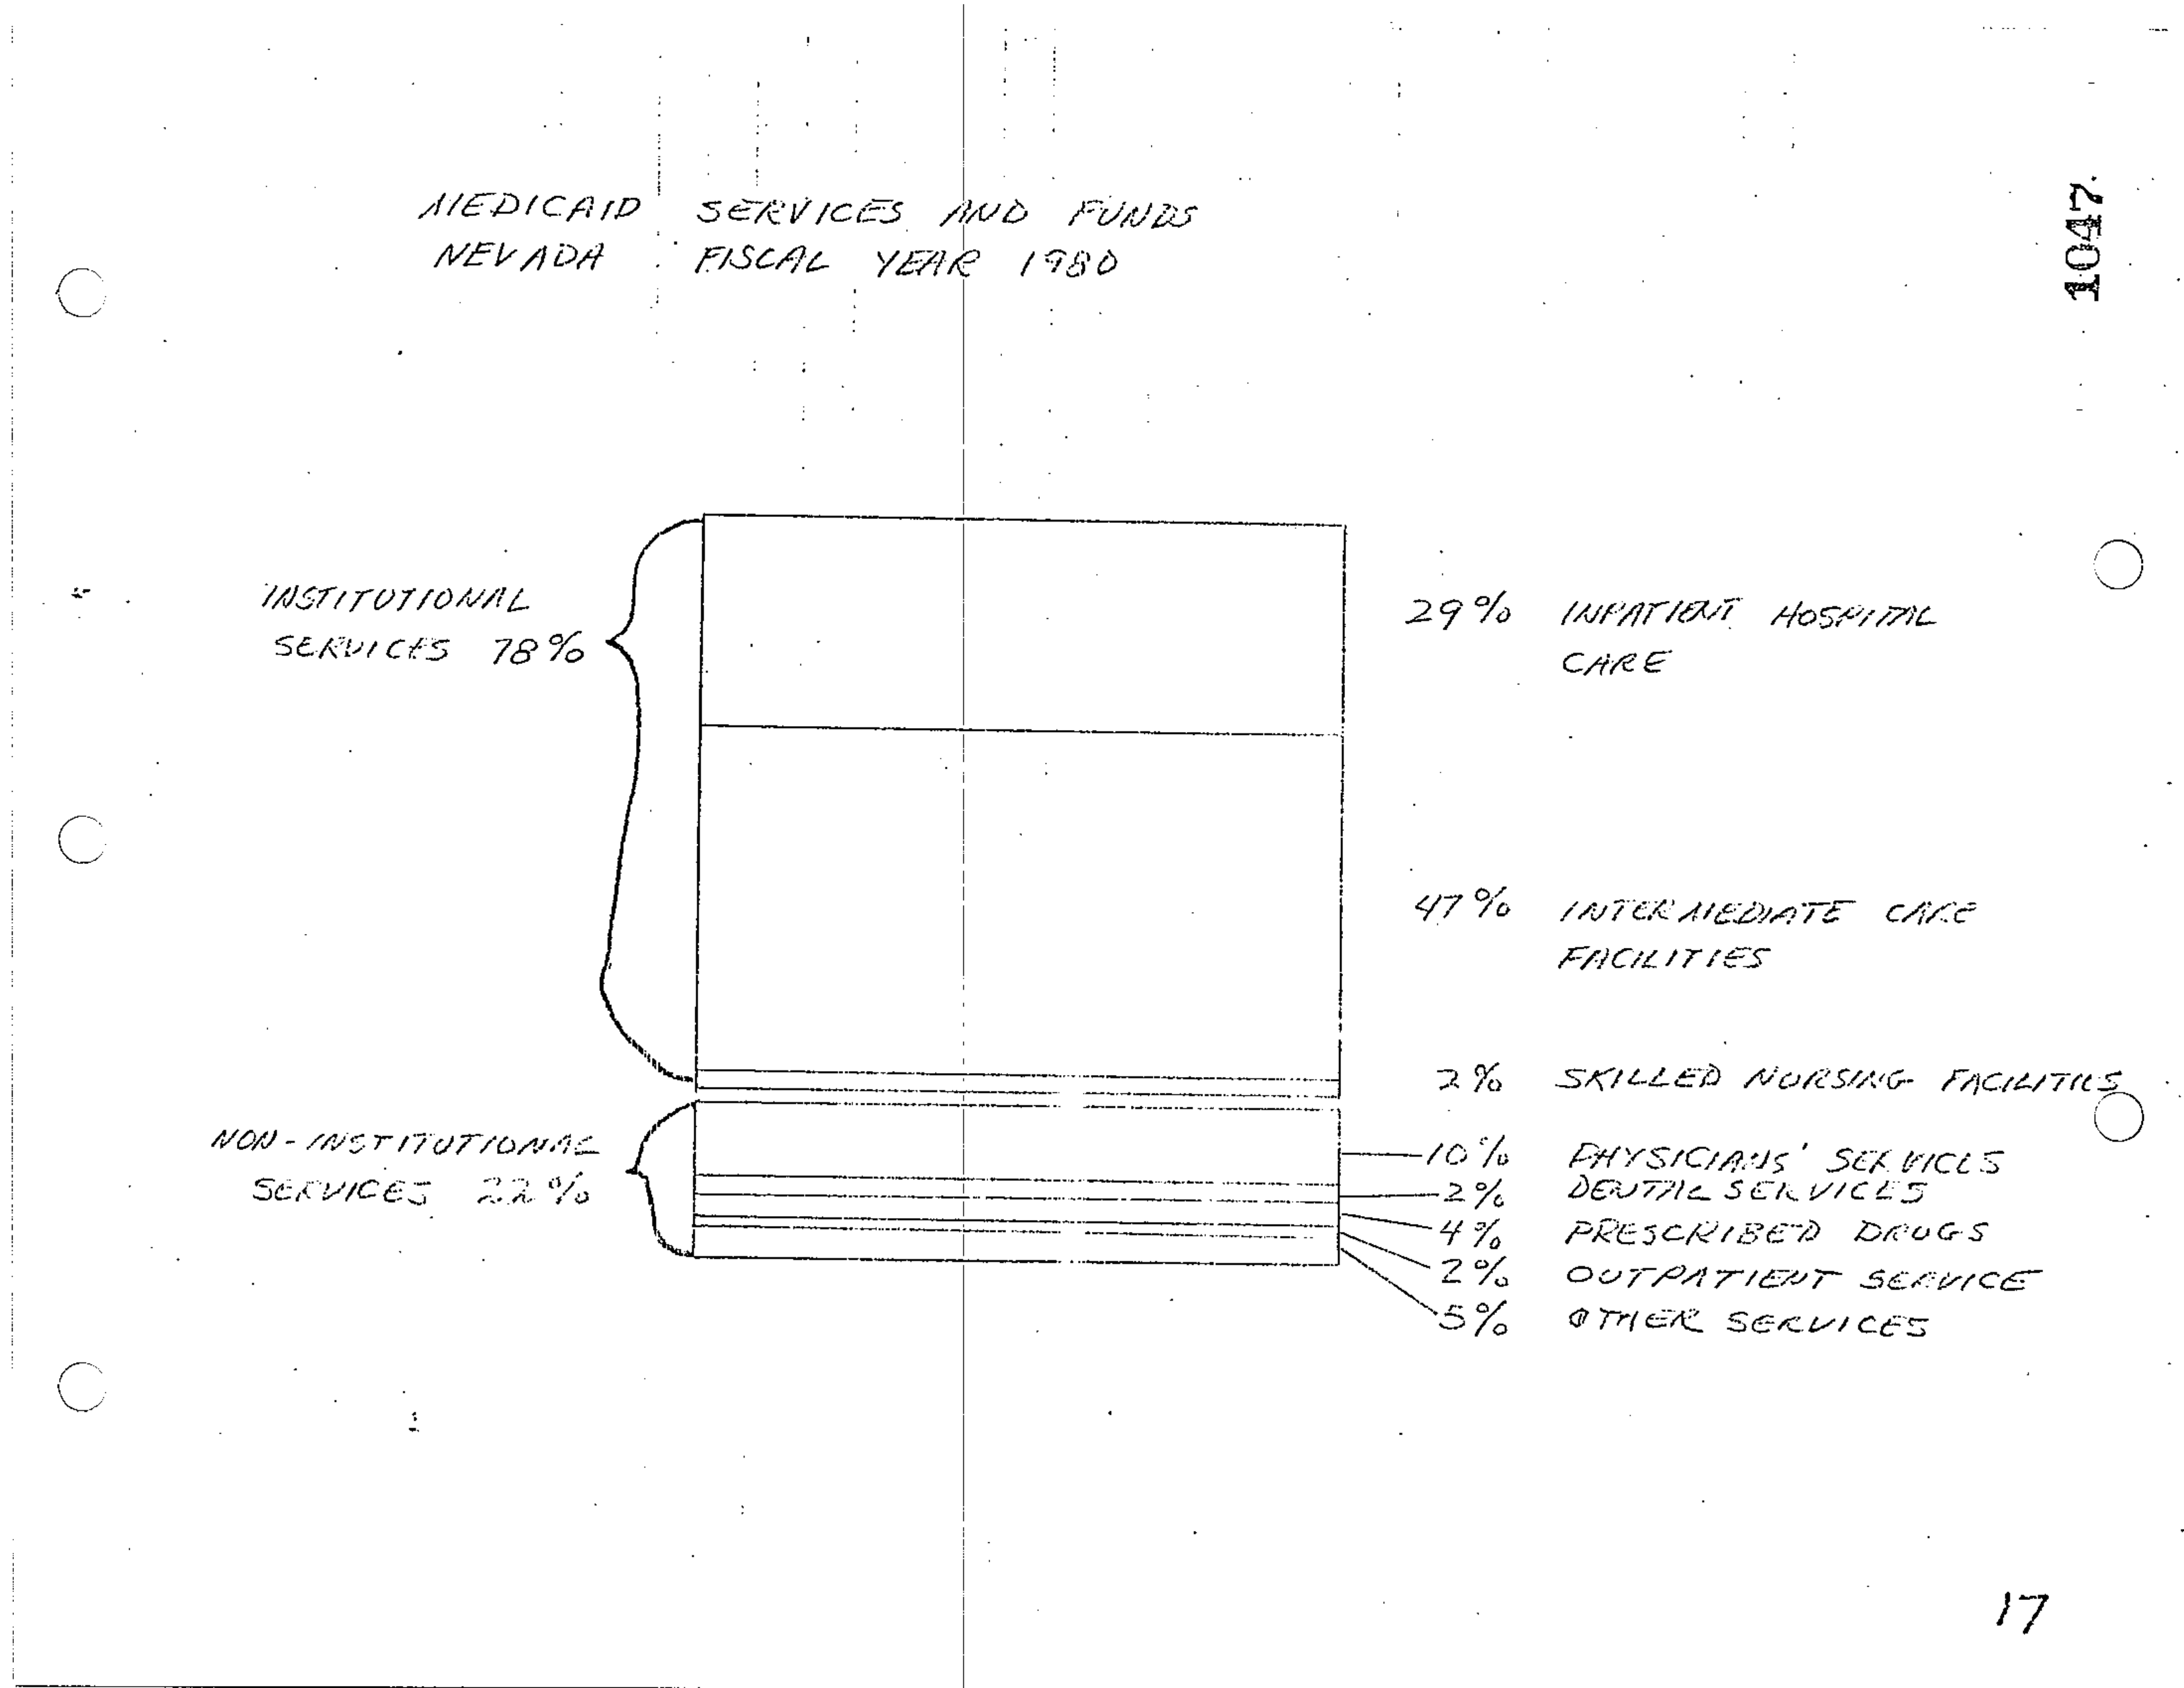 MEDICAID SERVICES AND FUNDS
NEVADA FISCAL YEAR 1980
1047
INSTITUTIONAL
SERVICES 78%
29% INPATIENT HOSPITAL
CARE
47% INTERMEDIATE CARE
FACILITIES
2% SKILLED NURSING FACILITIES
NON-INSTITUTIONAL
SERVICES 22%
10% PHYSICIANS' SERVICES
2% DENTAL SERVICES
4% PRESCRIBED DRUGS
2% OUTPATIENT SERVICE
5% OTHER SERVICES
17